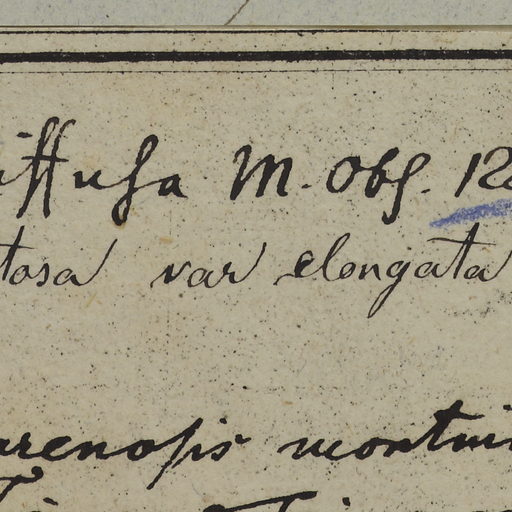 iffusa M. Obs. 12
tosa var elongata
arenosis montui